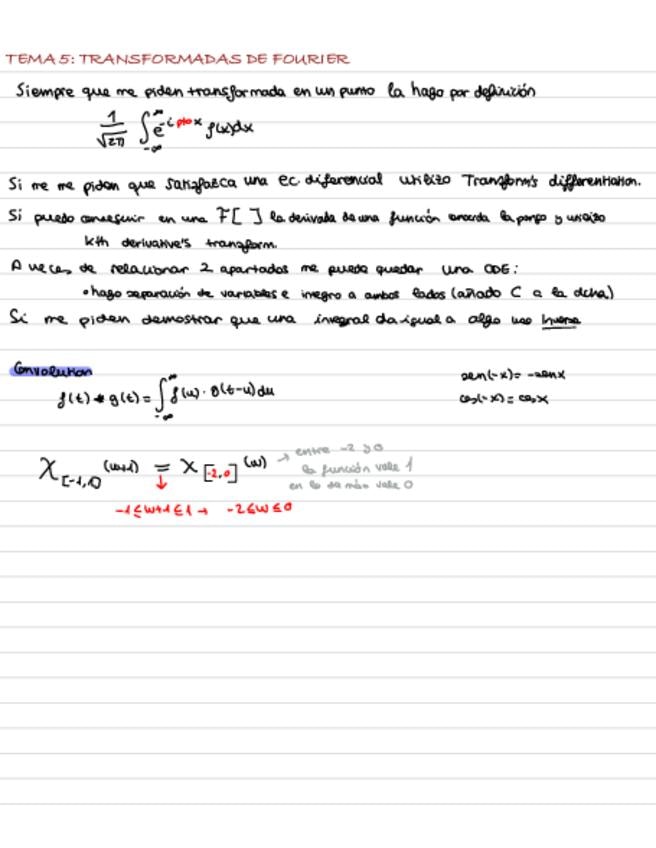 TEMA 5: TRANSFORMADAS DE FOURIER
Siempre que me piden transformada en un punto la hago por definición
1/√2π ∫_{-∞}^{∞} e^{-i pto x} f(x)dx
Si me me piden que satisfazca una ec. diferencial utilizo Transform's differentiation.
Si puedo conseguir en una F[ ] la derivada de una función la pongo y utilizo
kth derivative's transform.
A veces de relacionar 2 apartados me puede quedar una ODE:
• hago separación de variables e inegro a ambos lados (añado C a la dcha)
Si me piden demostrar que una integral da igual a algo uso Inversa
Convolution
f(t) * g(t) = ∫_{-∞}^{∞} f(u) · g(t-u) du
sen(-x) = -senx
cos(-x) = cosx
X_{[-1,1]}(w+1) = X_{[-2,0]}(w) → entre -2 y 0
la función vale 1
en lo demás vale 0
↓
-1 ≤ w+1 ≤ 1 → -2 ≤ w ≤ 0